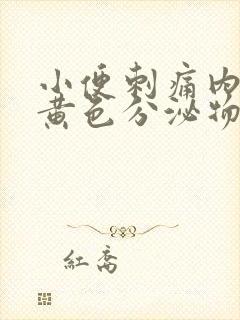 小便刺痛内
黄色分泌物
红乔